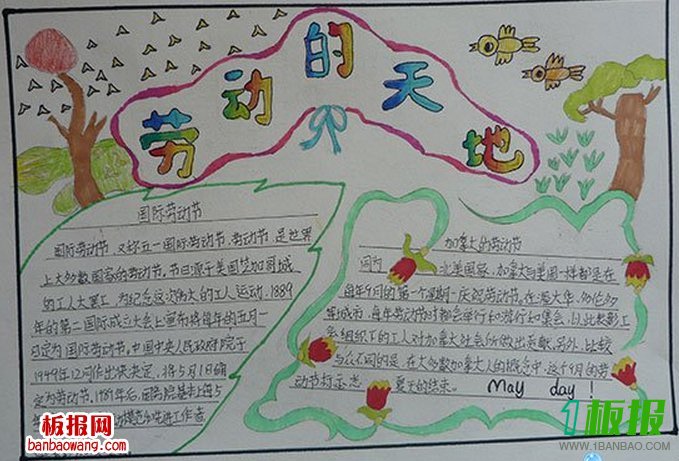 劳动的天地
国际劳动节
国际劳动节又称五一国际劳动节、劳动节,是世界
上大多数国家的劳动节。节日源于美国芝加哥城
的工人大罢工,为纪念这次伟大的工人运动,1889
年的第二国际成立大会上宣布将每年的五月一
日定为国际劳动节。中国中央人民政府政务院于
1949年12月作出决定,将5月1日确
定为劳动节。1989年后,国务院基本上每5
模范和先进工作者
加拿大的劳动节
同为北美国家,加拿大与美国一样都是在
每年9月的第一个星期一庆祝劳动节。在渥太华、多伦多
等城市,每年劳动节时都会举行和游行和集会,以此表彰工
会组织下的工人对加拿大社会所做出贡献。另外,比较
与众不同的是,在大多数加拿大人的概念中,这个9月的劳
动节标志着夏天的结束。
May day!
板报网
banbaowang.com
1板报
WWW.1BANBAO.COM